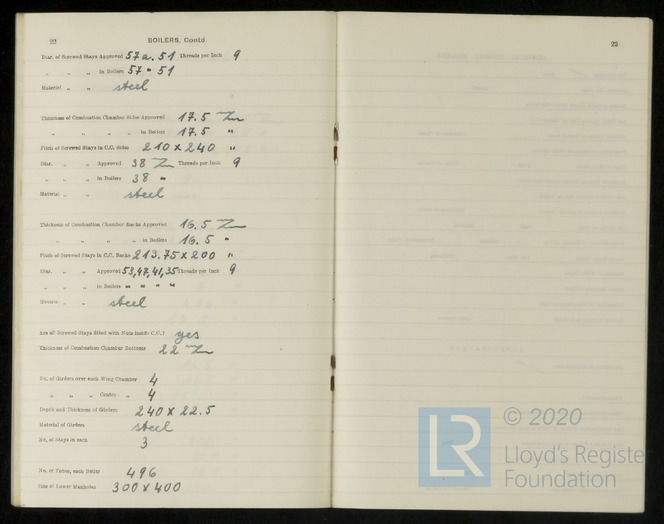 22
BOILERS, Contd.
Diar. of Screwed Stays Approved 57 a. 51 Threads per Inch 9
" " " in Boilers 57 " 51
Material " " steel
Thickness of Combustion Chamber Sides Approved 17.5
" " " " in Boilers 17.5 "
Pitch of Screwed Stays in C.C. Sides 210 x 240 "
Diar. " " Approved 38 Threads per Inch 9
" " " in Boilers 38 "
Material " " steel
Thickness of Combustion Chamber Backs Approved 16.5
" " " " in Boilers 16.5 "
Pitch of Screwed Stays in C.C. Backs 213.75 x 200 "
Diar. " " Approved 53, 47, 41, 35 Threads per Inch 9
" " " in Boilers " " " "
Material " " steel
Are all Screwed Stays fitted with Nuts inside C.C.? yes
Thickness of Combustion Chamber Bottoms 22
No. of Girders over each Wing Chamber 4
" " " Centre " 4
Depth and Thickness of Girders 240 x 22.5
Material of Girders steel
No. of Stays in each 3
No. of Tubes, each Boiler 496
Size of Lower Manholes 300 x 400
23
LR
© 2020
Lloyd's Register
Foundation